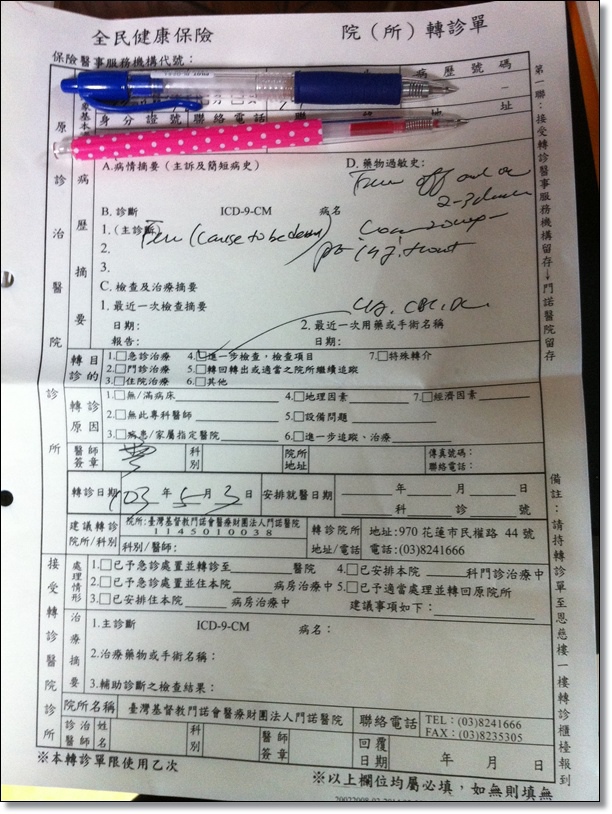 全民健康保險 院（所）轉診單
保險醫事服務機構代號：
病歷號碼
身分證號 聯絡電話 址
原診治醫院診所
病歷摘要
A.病情摘要（主訴及簡短病史） D.藥物過敏史：
off and on
2-3
B.診斷 ICD-9-CM 病名
1.(主診斷) (cause to be
2.
3.
C.檢查及治療摘要
1.最近一次檢查摘要
日期：
報告：
2.最近一次用藥或手術名稱
日期：
轉診目的
1.□急診治療 4.□進一步檢查，檢查項目 7.□特殊轉介
2.□門診治療 5.□轉回轉出或適當之院所繼續追蹤
3.□住院治療 6.□其他
轉診原因
1.□無/滿病床 4.□地理因素 7.□經濟因素
2.□無此專科醫師 5.□設備問題
3.□病患/家屬指定醫院 6.□進一步追蹤、治療
醫師簽章 科別 院所地址 傳真號碼：
聯絡電話：
轉診日期 103年5月3日 安排就醫日期 年 月 日
科 診 號
建議轉診院所/科別 院所：臺灣基督教門諾會醫療財團法人門諾醫院
1145010038
科別/醫師：
轉診院所地址/電話 地址：970 花蓮市民權路 44 號
電話：(03)8241166
接受轉診醫院診所
處理情形
1.□已予急診處置並轉診至 醫院 4.□已安排本院 科門診治療中
2.□已予急診處置並住本院 病房治療中 5.□已予適當處理並轉回原院所
3.□已安排住本院 病房治療中 建議事項如下：
治療摘要
1.主診斷 ICD-9-CM 病名：
2.治療藥物或手術名稱：
3.輔助診斷之檢查結果：
院所名稱 臺灣基督教門諾會醫療財團法人門諾醫院 聯絡電話 TEL：(03)8241666
FAX：(03)8235305
診治醫師 姓名 科別 醫師簽章 回覆日期 年 月 日
※本轉診單限使用乙次
※以上欄位均屬必填，如無則填無
第一聯：接受轉診醫事服務機構留存→門諾醫院留存
備註：請持轉診單至恩慈樓一樓轉診櫃檯報到